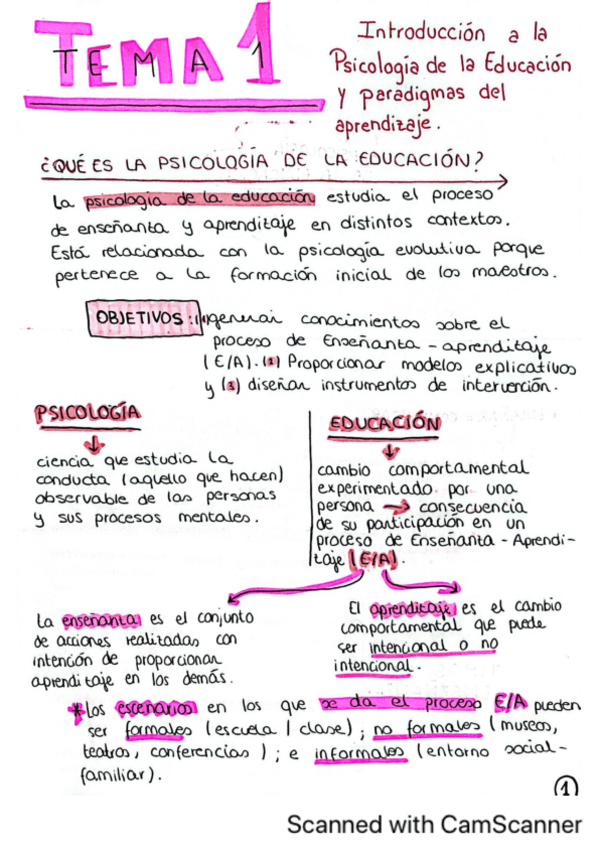 TEMA 1
Introducción a la
Psicología de la Educación
y paradigmas del
aprendizaje.
¿QUÉ ES LA PSICOLOGÍA DE LA EDUCACIÓN?
La psicología de la educación estudia el proceso
de enseñanza y aprendizaje en distintos contextos.
Está relacionada con la psicología evolutiva porque
pertenece a la formación inicial de los maestros.
OBJETIVOS: (1) generar conocimientos sobre el
proceso de Enseñanza - aprendizaje
(E/A). (2) Proporcionar modelos explicativos
y (3) diseñar instrumentos de intervención.
PSICOLOGÍA
ciencia que estudia la
conducta (aquello que hacen)
observable de las personas
y sus procesos mentales.
EDUCACIÓN
cambio comportamental
experimentado por una
persona → consecuencia
de su participación en un
proceso de Enseñanza - Aprendi-
zaje (E/A).
La enseñanza es el conjunto
de acciones realizadas con
intención de proporcionar
aprendizaje en los demás.
El aprendizaje es el cambio
comportamental que puede
ser intencional o no
intencional.
*Los escenarios en los que se da el proceso E/A pueden
ser formales (escuela / clase); no formales (museos,
teatros, conferencias); e informales (entorno social-
familiar).
1
Scanned with CamScanner